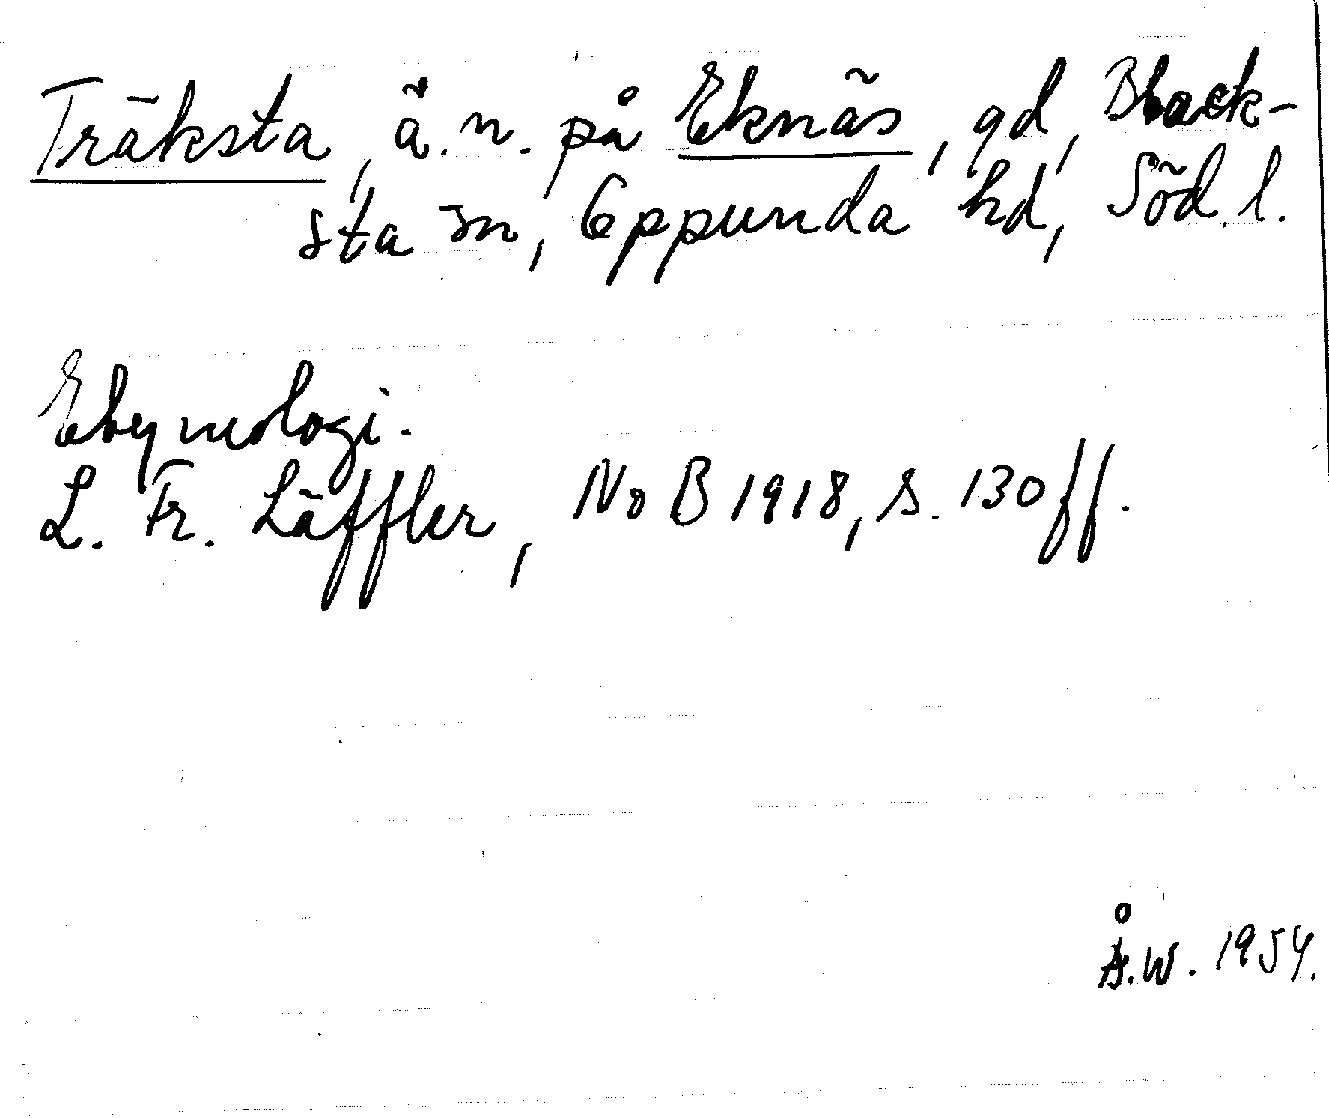 Träksta, ä.n. på Eknäs, gd, Black-
sta sn, Oppunda hd, Söd.l.
Etymologi.
L. Fr. Läffler, NoB 1918, s. 130 ff.
Å.W. 1954.